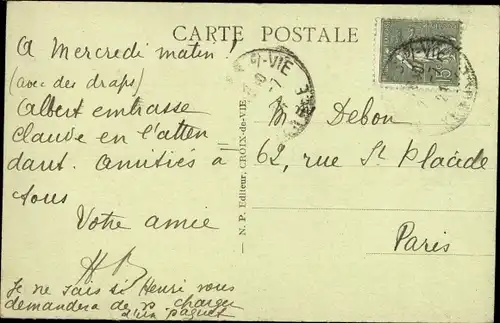 CARTE POSTALE
A Mercredi matin !
(avec des draps)
Albert embrasse
Claude en l'atten
dant. Amitiés à
tous
Votre amie
Je ne sais si Henri vous
demandera de charger
d'un paquet
N. P. Editeur, CROIX-de-VIE
VIE
VIE
15
M Debon
62, rue St Placide
Paris